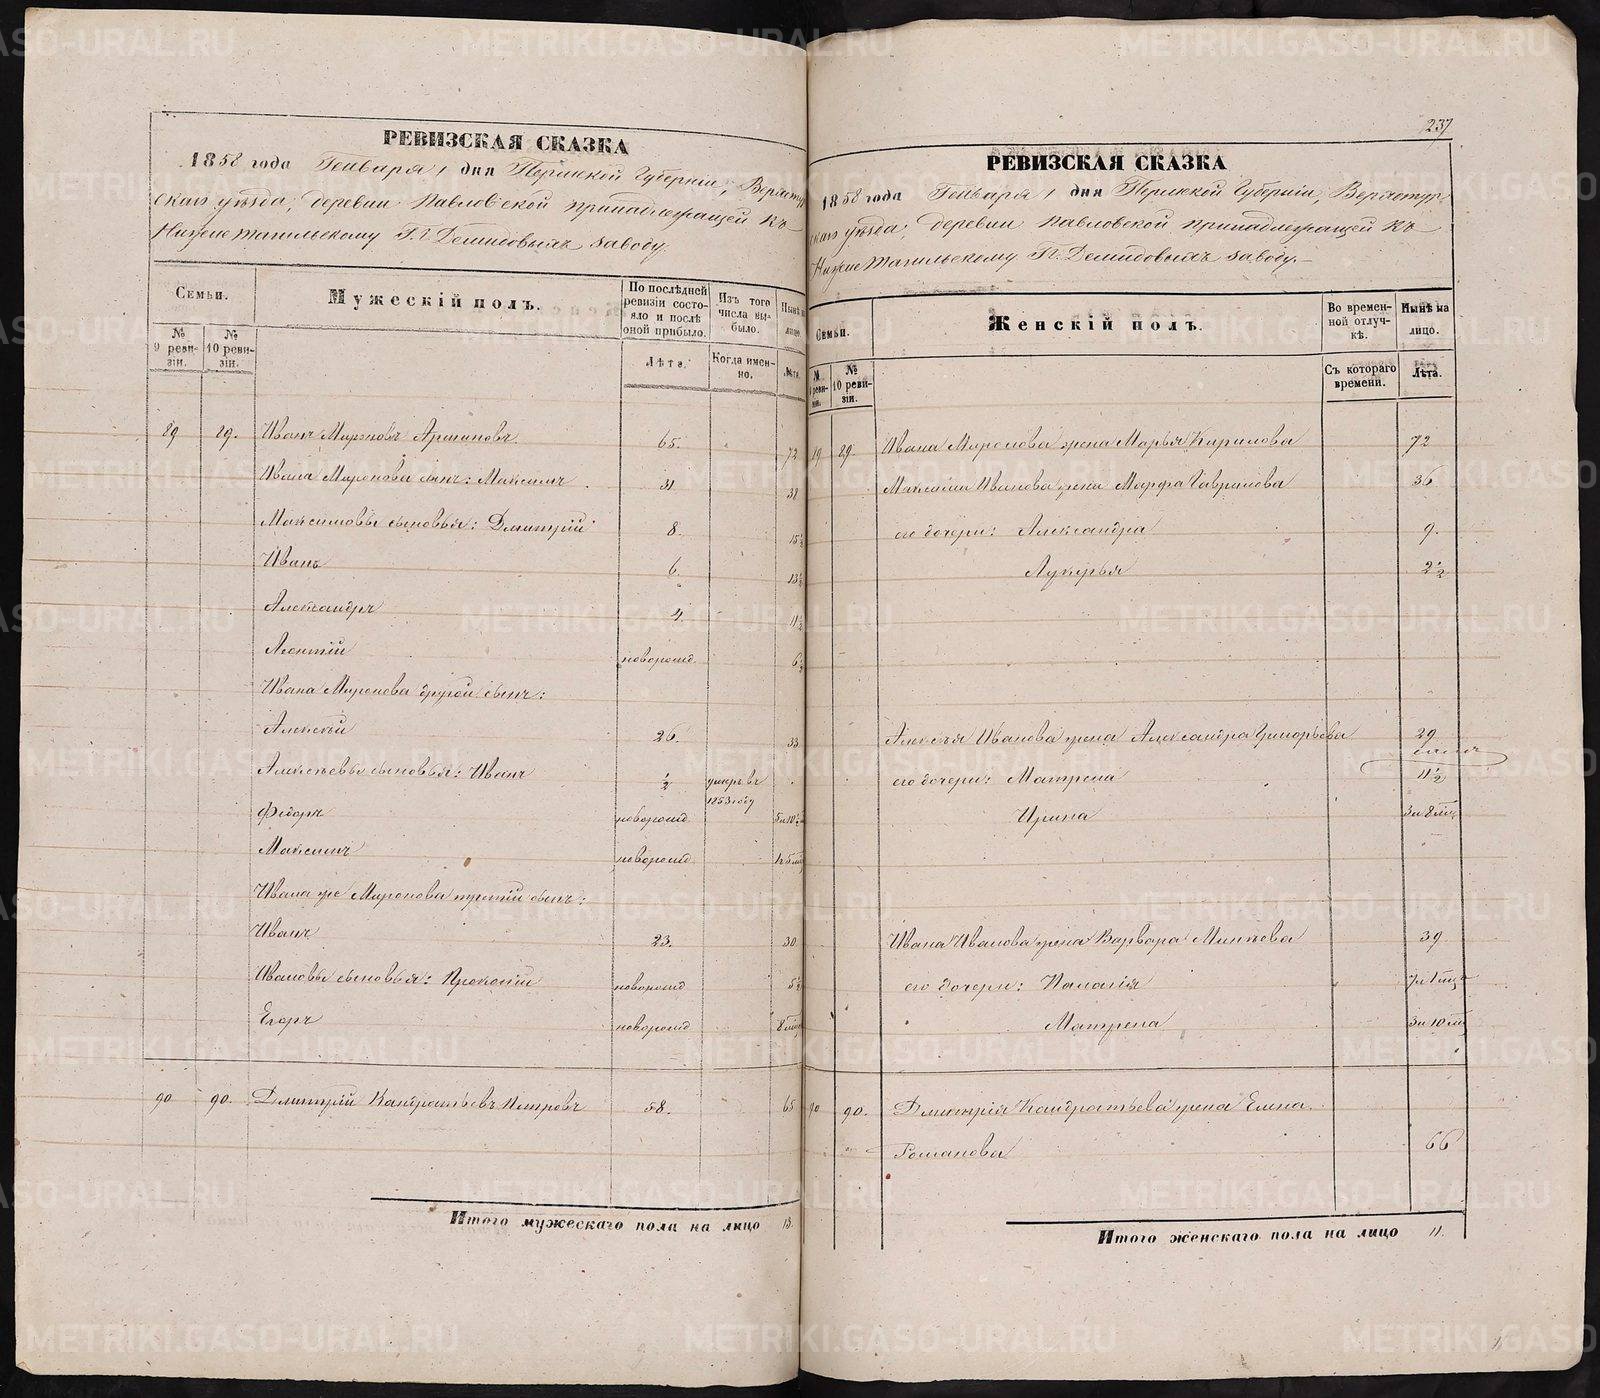 РЕВИЗСКАЯ СКАЗКА
1858 года Генваря 1 дня Пермской Губерніи, Верхотур
скаго уѣзда, деревни Павловской принадлежащей къ
Нижнетагильскому Г.г. Демидовыхъ заводу.
Семьи.
№ 9 ревизіи.
№ 10 ревизіи.
Мужескій полъ.
По послѣдней ревизіи состояло и послѣ оной прибыло.
Лѣта.
Изъ того числа выбыло.
Когда именно.
Нынѣ на лицо.
Лѣта.
89 89. Иванъ Мироновъ 65. 72
Ивана Миронова сынъ: Максимъ 31 38
Максимовы сыновья: Дмитрій 8 15½
Иванъ 6. 13½
Александръ 4. 11½
Леонтій новорожд. 6½
Ивана Миронова другой сынъ:
Алексѣй 26. 33
Алексѣевы сыновья: Иванъ ½ умеръ въ 1853 году
Федоръ новорожд
Максимъ новорожд
Ивана же Миронова третій сынъ:
Иванъ 23. 30
Ивановы сыновья: Прокопій новорожд 5½
Егоръ новорожд
90 90. Дмитрій Кандратьевъ Петровъ 58. 65
Итого мужескаго пола на лицо 13.
237
РЕВИЗСКАЯ СКАЗКА
1858 года Генваря 1 дня Пермской Губерніи, Верхотур
скаго уѣзда, деревни Павловской принадлежащей къ
Нижнетагильскому Г.г. Демидовыхъ заводу.
Семьи.
№ 10 ревизіи.
Женскій полъ.
Во временной отлучкѣ.
Съ котораго времени.
Нынѣ на лицо.
Лѣта.
89. Ивана Миронова жена Марья Кирилова 72
Максима Иванова жена Марфа Гаврилова 36
его дочери: Александра 9.
Лукерья 2½
Алексѣя Иванова жена Александра Григорьева 29
его дочери: Матрена 11½
Ирина
Ивана Иванова жена Варвара Минѣева 39
его дочери: Маланія
Матрена
90 90. Дмитрія Кандратьева жена Елена
Романова 66
Итого женскаго пола на лицо 11.
METRIKI.GASO-URAL.RU